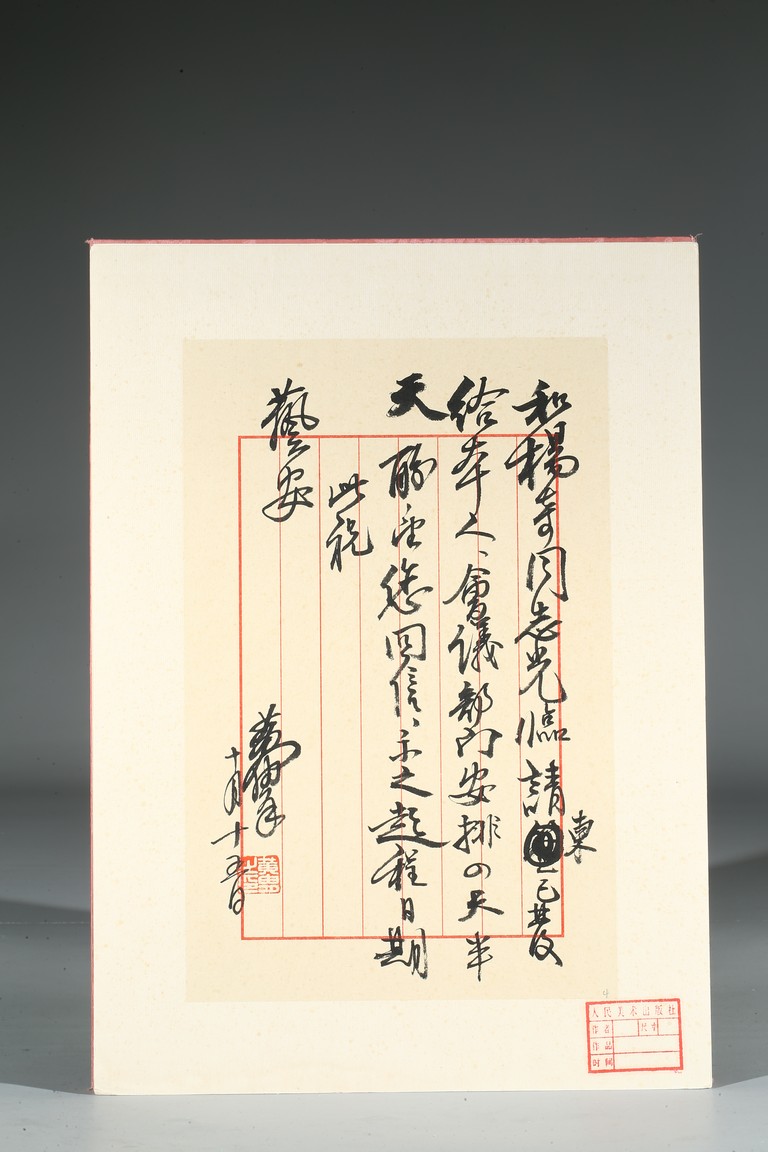 和楊奇同志光臨請柬已發
給本人、會議部門安排四天半
天酌望您回信、示之起程日期
此祝
藝安
黃
十月十五日
4
人民美术出版社
作者 尺寸
作品
时候